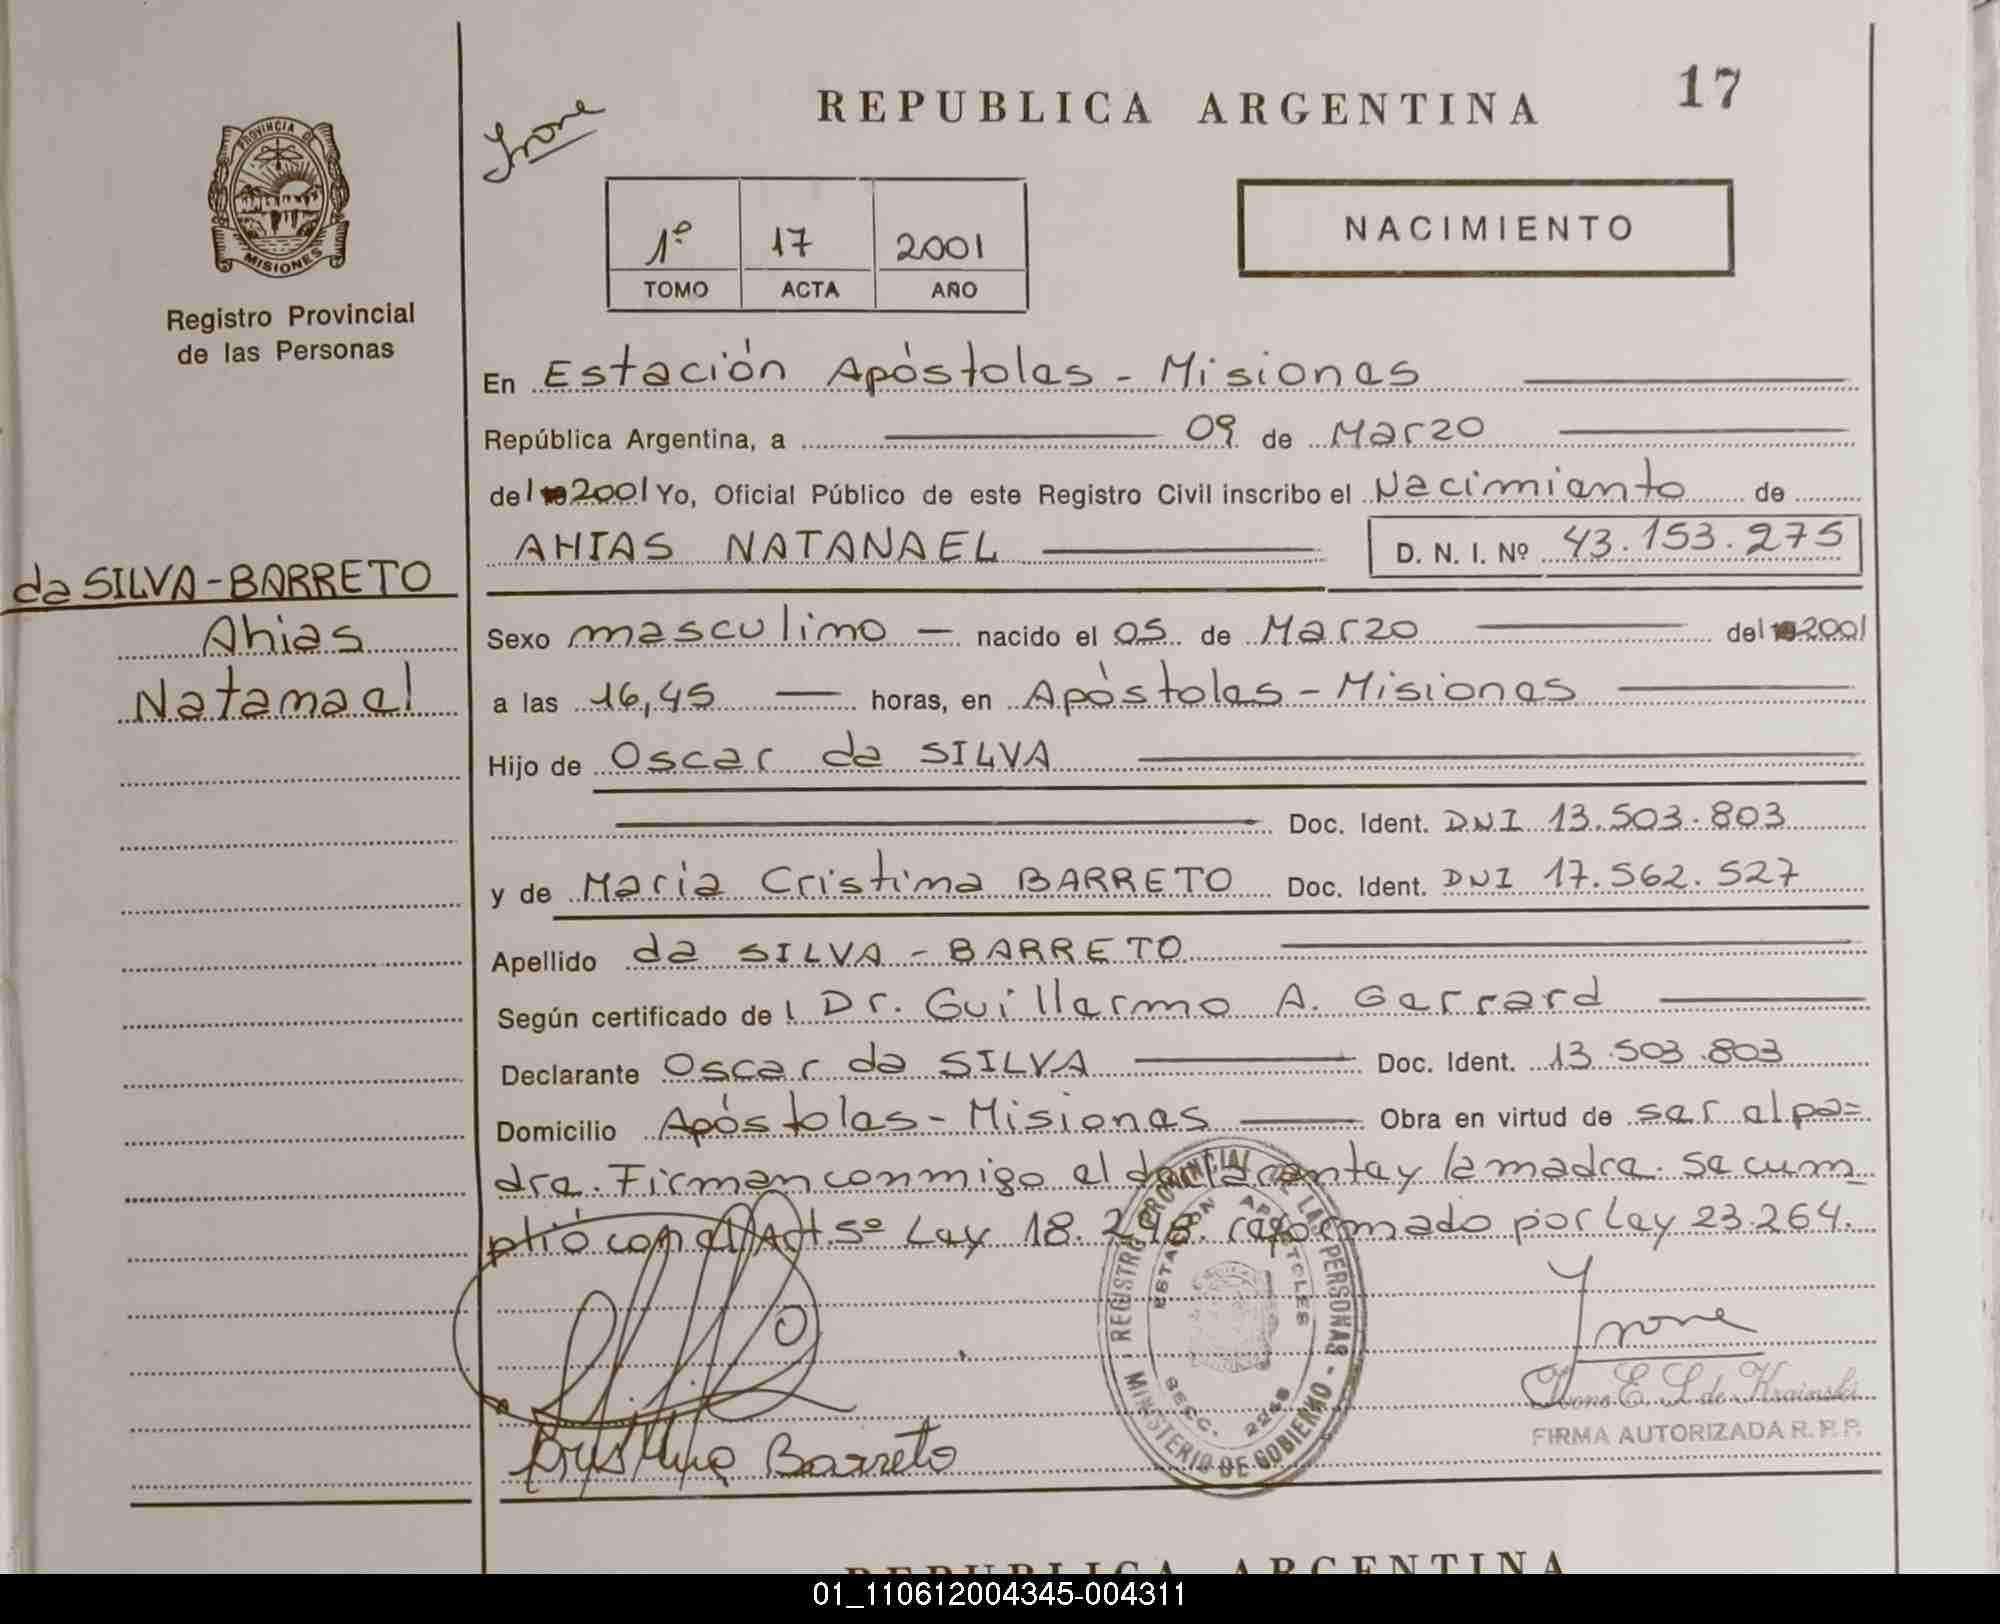 REPUBLICA ARGENTINA
17
Irone
PROVINCIA DE
MISIONES
Registro Provincial
de las Personas
1º 17 2001
TOMO ACTA AÑO
NACIMIENTO
En Estación Apóstoles - Misiones
República Argentina, a 09 de Marzo
del 2001 Yo, Oficial Público de este Registro Civil inscribo el Nacimiento de
AHIAS NATANAEL D. N. I. Nº 43.153.275
da SILVA-BARRETO
Ahias
Natanael
Sexo masculino nacido el 05 de Marzo del 2001
a las 16,45 horas, en Apóstoles - Misiones
Hijo de Oscar da SILVA
Doc. Ident. DNI 13.503.803
y de Maria Cristina BARRETO Doc. Ident. DNI 17.562.527
Apellido da SILVA - BARRETO
Según certificado de l Dr. Guillermo A. Gerrard
Declarante Oscar da SILVA Doc. Ident. 13.503.803
Domicilio Apóstoles - Misiones Obra en virtud de ser el pa=
dre. Firman conmigo el declarante y la madre. Se cum_
plió con el Art. 5º Ley 18.248. reformado por Ley 23.264.
REGISTRO PROVINCIAL DE LAS PERSONAS - MINISTERIO DE GOBIERNO -
ESTACION APOSTOLES
SECC. 2246
Irone
E. S. de Krainski
FIRMA AUTORIZADA R. P. P.
Cristina Barreto
REPUBLICA ARGENTINA
01_110612004345-004311